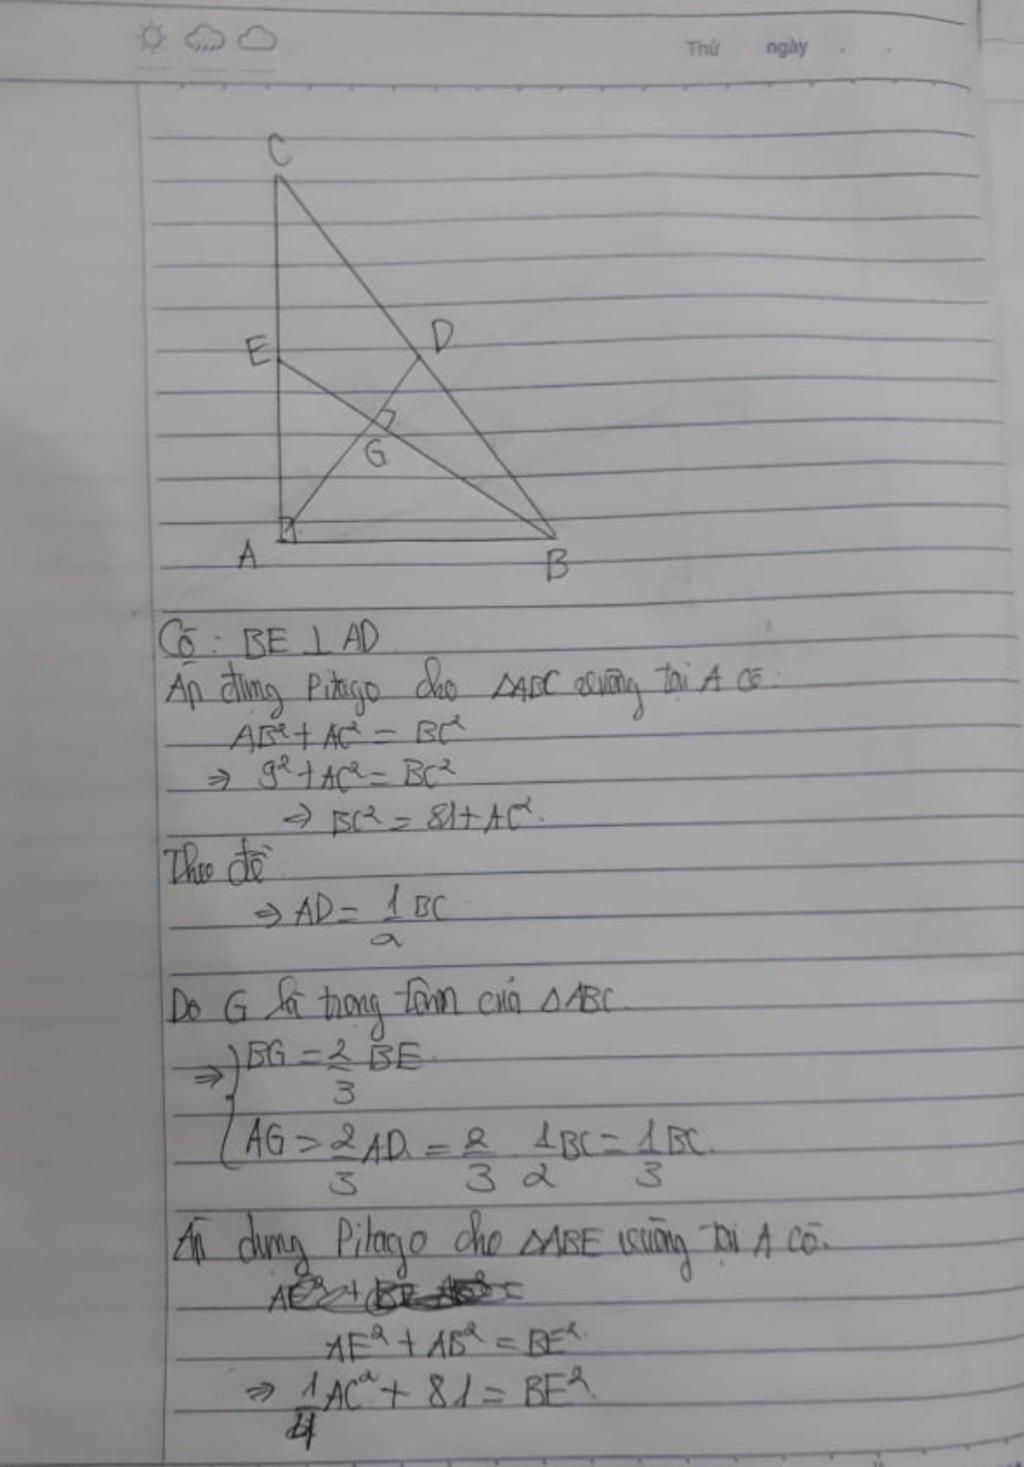 Thứ ngày
C
E
D
G
A
B
Có: BE ⊥ AD
Áp dụng Pitago cho △ABC vuông tại A có:
AB² + AC² = BC²
⇒ 9² + AC² = BC²
⇒ BC² = 81 + AC².
Theo đề
⇒ AD = 1/2 BC
Do G là trọng tâm của △ABC.
⇒ { BG = 2/3 BE.
AG = 2/3 AD = 2/3 . 1/2 BC = 1/3 BC.
Áp dụng Pitago cho △ABE vuông tại A có.
AE² + AB² = BE².
⇒ 1/4 AC² + 81 = BE².